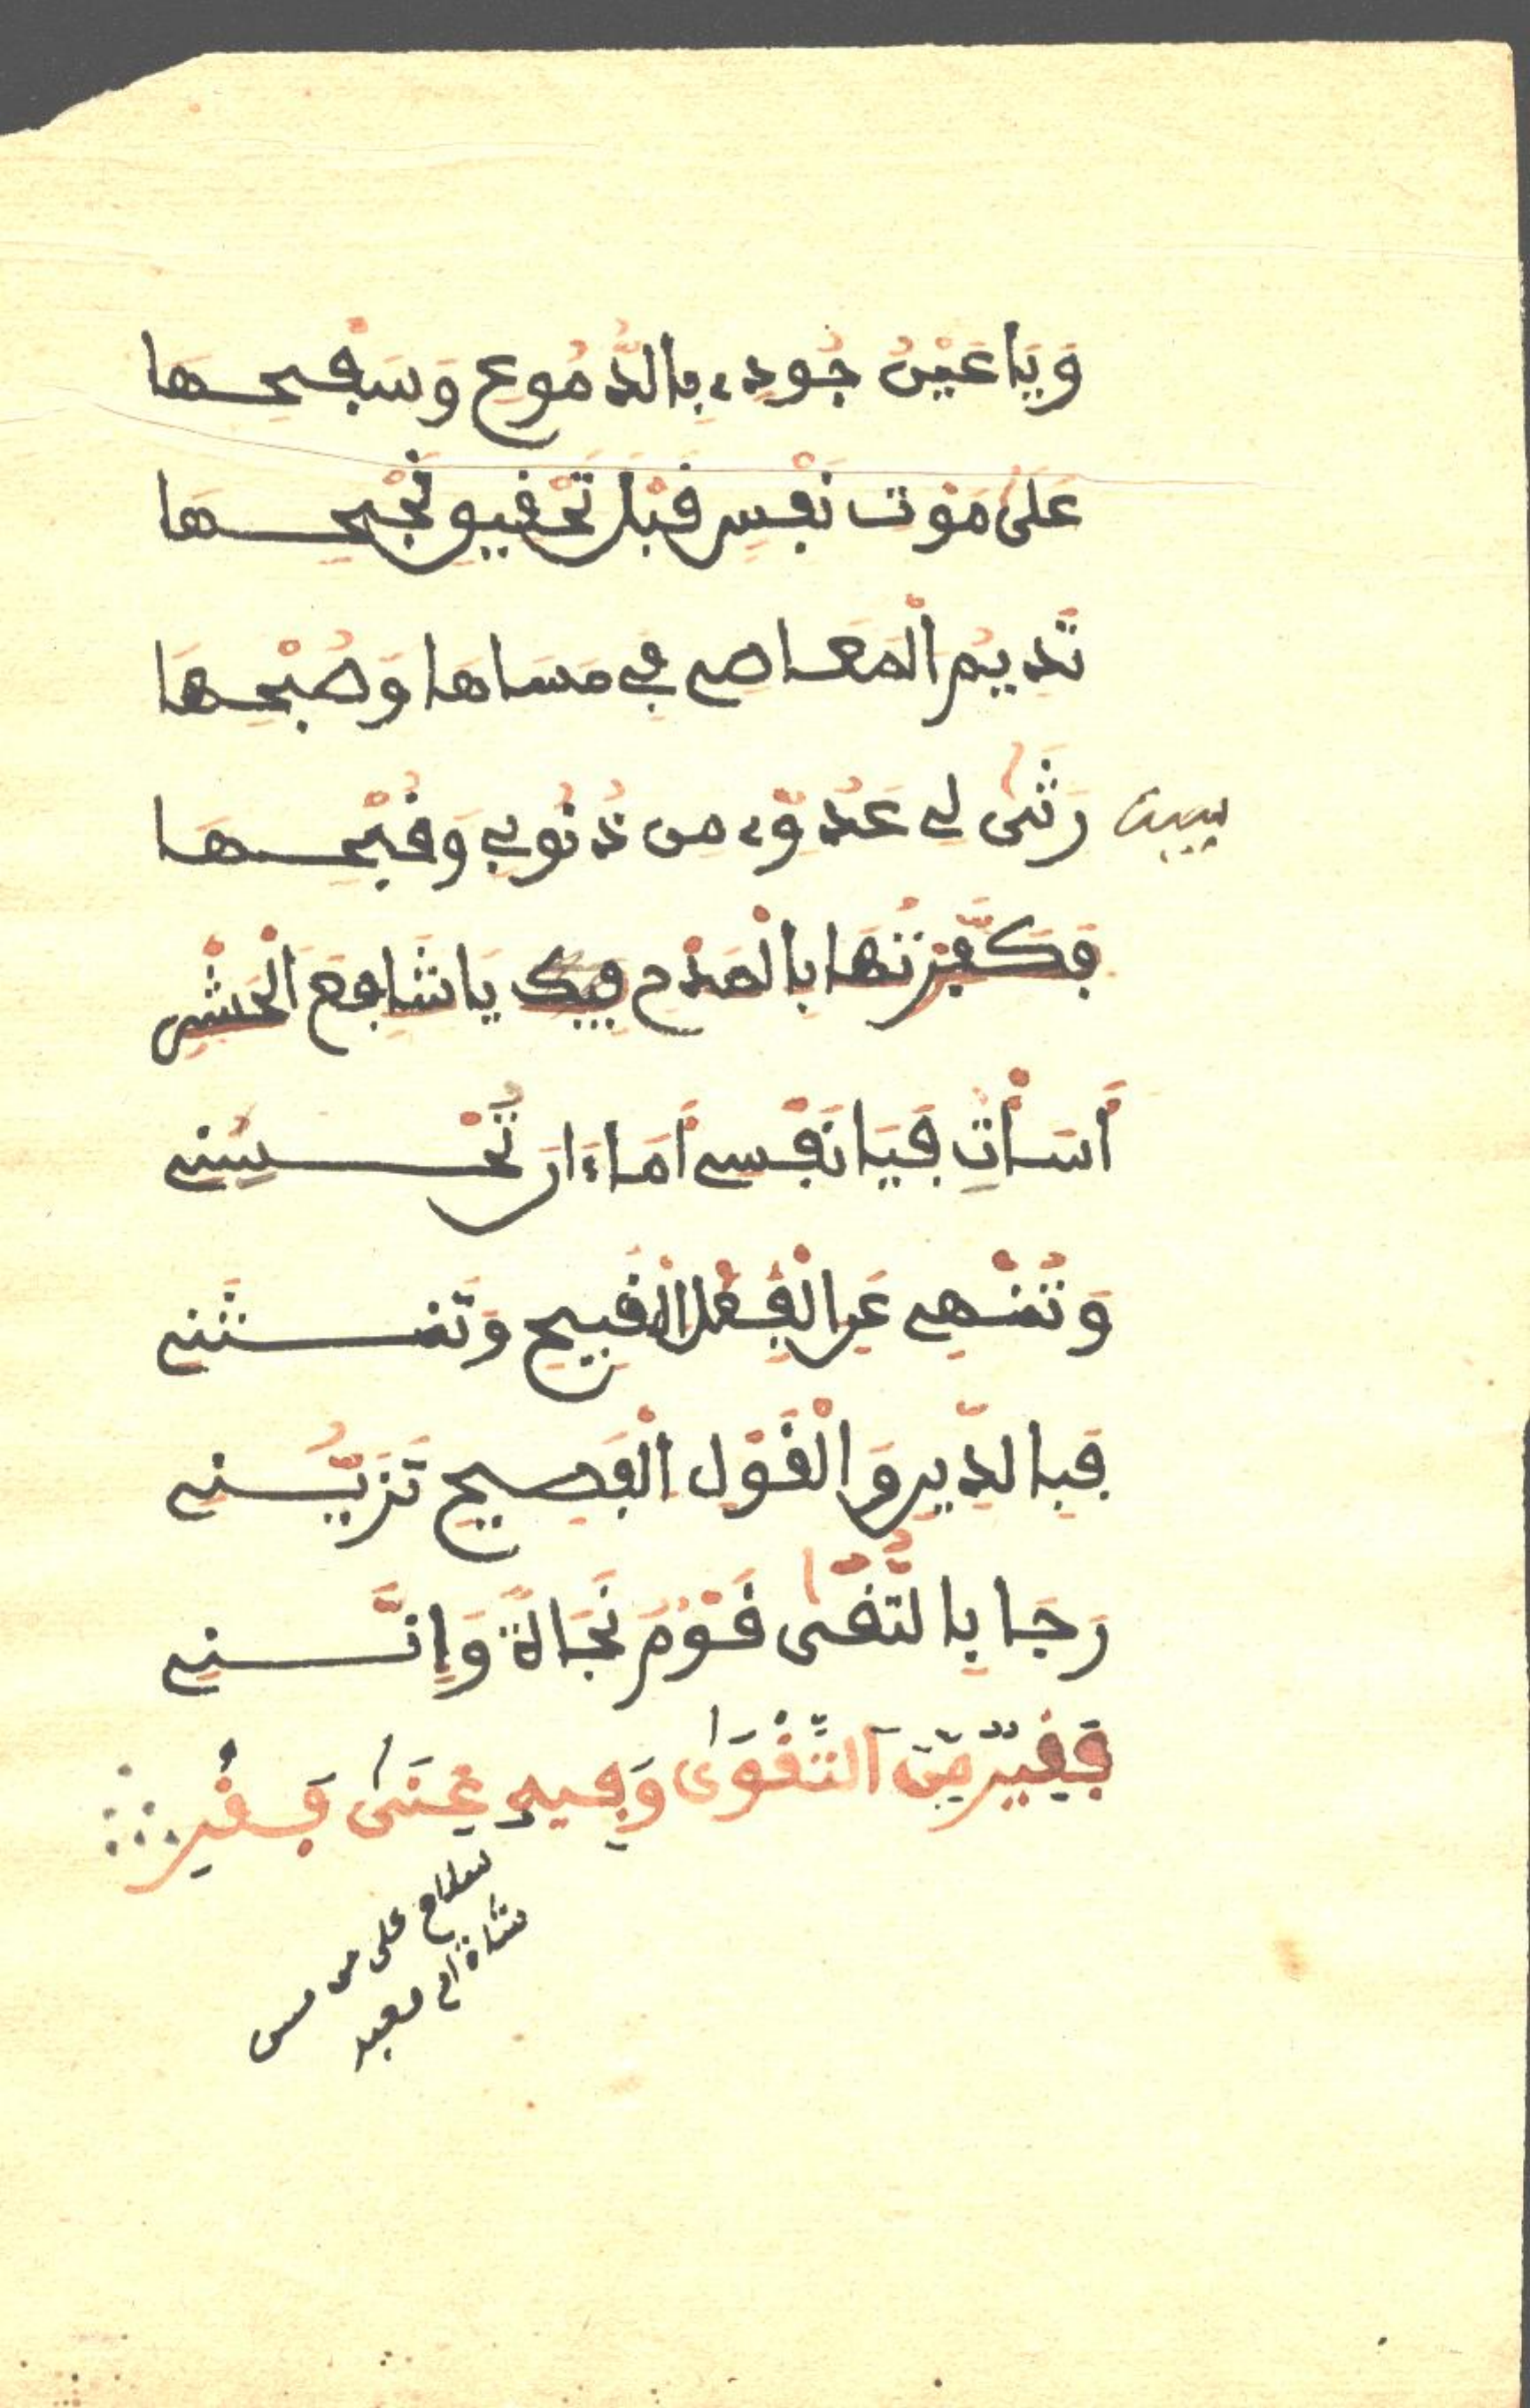 وَيَا عَيْنُ جُودِي بِالدُّمُوعِ وَسَفْحِهَا
عَلَى مَوْتِ نَفْسٍ قَبْلَ تَحْقِيقِ نُجْحِهَا
تُدِيمُ الْمَعَاصِي فِي مَسَاهَا وَصُبْحِهَا
بيت رَثَى لِي عَدُوِّي مِن ذُنُوبِي وَقُبْحِهَا
فَكَفَّرْتُهَا بِالْمَدْحِ فِيكَ يَا شَافِعَ الْحَشْرِ
أَسَأْتِ فَيَا نَفْسِي أَمَا ءَانَ تُحْسِنِي
وَتُنْهِي عَنِ الْفِعْلِ الْقَبِيحِ وَتَنثَنِي
فَبِالدِّينِ وَالْقَوْلِ الْفَصِيحِ تَزَيَّنِي
رَجَا بِالتُّقَى قَوْمٌ نَجَاةً وَإِنَّنِي
فَقِيرٌ مِّنَ التَّقْوَى وَفِيهِ غِنَى فَقْرِ
سلام على من مس
شاة ام معبد